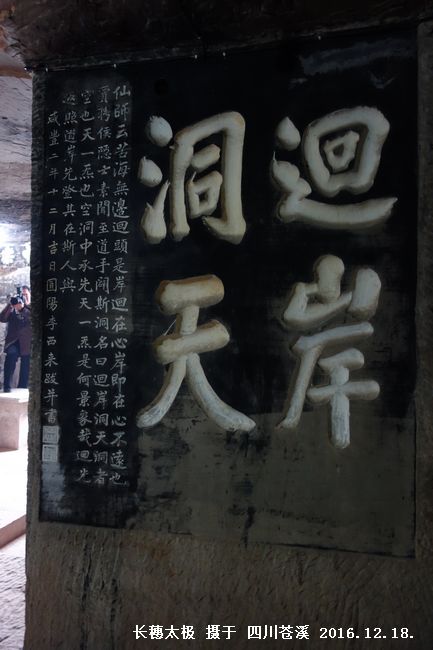 迴岸
洞天
仙師云苦海無邊迴頭是岸迴在心岸即在心不遠也
賈揚侯隱士素聞至道手闢斯洞名曰迴岸洞天洞者
空也天一炁也空洞中承先天一炁是何景象哉迴光
返照道岸先登其在斯人與
咸豐二年十二月吉日閬陽李西來跋并書
长穗太极 摄于 四川苍溪 2016.12.18.